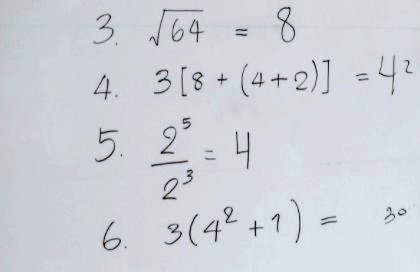 3. √64 = 8
4. 3[8 + (4+2)] = 42
5. 2⁵/2³ = 4
6. 3(4² + 1) = 30